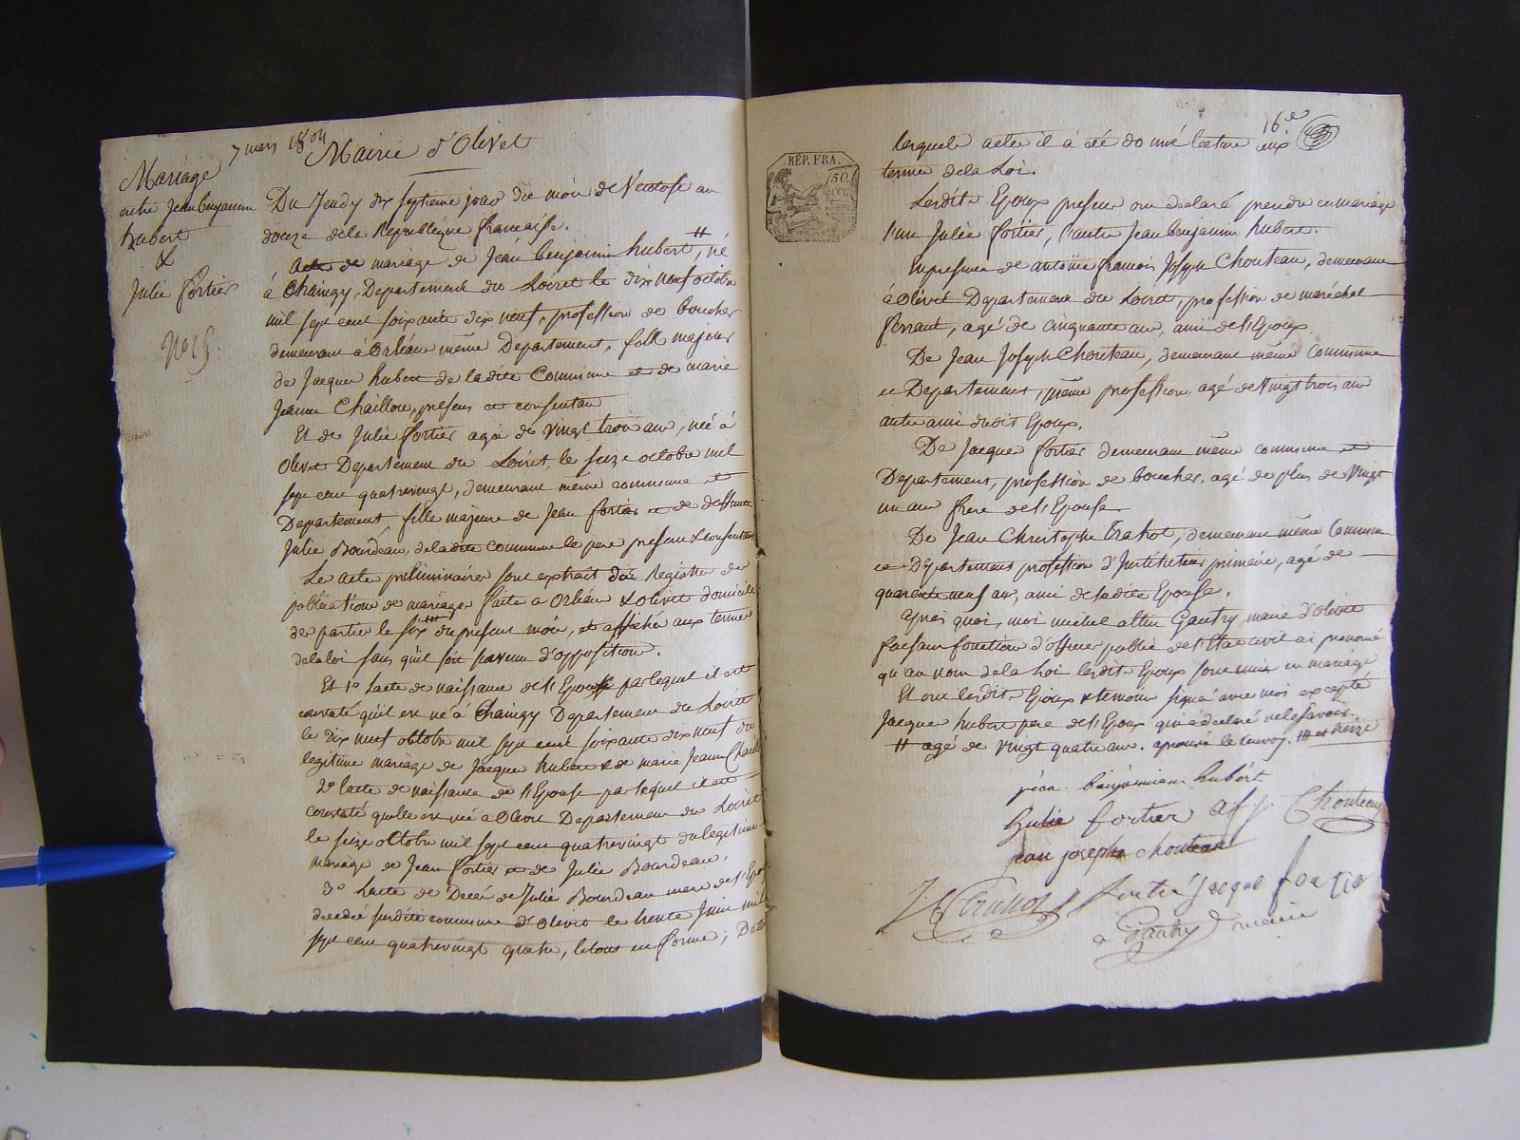 7 mars 1804
Mairie d'Olivet
Mariage
entre Jean benjamin
hubert
&
Julie fortier
No 15.
Du Jeudy dix septieme jour du mois de Ventose an
douze de la Republique francaise.
Acte de mariage de Jean benjamin hubert, né
à Chaingy, Departement du Loiret le dix neuf octobre
mil sept cent soixante dix neuf, profession de boucher
demeurant à Orléans même Departement, fils majeur
de Jacque hubert de ladite Commune et de marie
Jeanne Chaillou, presens et consentans
Et de Julie fortier agée de vingt trois ans, née à
Olivet Departement du Loiret, le seize octobre mil
sept cent quatrevingt, demeurant même commune et
Departement, fille majeure de Jean fortier et de deffunte
Julie Bourdeau, de ladite commune le pere present & consentant
Les actes preliminaires sont extrait des Registre de
publication de mariages faite a Orléans & olivet domicile
des parties le six du present mois, et affiches aux termes
de la loi sans qu'il soit parvenu d'opposition.
Et 1o Lacte de naissance de l'Epoux par lequel il est
constaté qu'il est né à Chaingy Departement du Loiret
le dix neuf octobre mil sept cent soixante dix neuf du
legitime mariage de Jacque hubert & de marie Jeanne Chaillou
2o lacte de naissance de l'Epouse par lequel il est
constaté quelle est née à Olivet Departement du Loiret
le seize octobre mil sept cent quatrevingt du legitime
mariage de Jean fortier et de Julie Bourdeau.
3o Lacte de Decés de Julie Bourdeau mere de l'Epouse
decedé susdite commune d'Olivet le trente Juin mil
sept cent quatrevingt quatre, letout en forme; De tous
16e
REP. FRA.
50
lesquels actes il à été donné lecture aux
termes de la Loi.
Lesdits Epoux presens ont declaré prendre en mariage
l'un Julie fortier, l'autre Jean benjamin hubert.
En presence de antoine francois Joseph Chouteau, demeurant
à Olivet Departement du Loiret, profession de maréchal
ferrant, agé de cinquante ans, ami de l'Epoux
De Jean Joseph Chouteau, demeurant même Commune
et Departement, même profession agé de vingt trois ans
autre ami dudit Epoux.
De Jacque fortier demeurant même commune et
Departement, profession de boucher, agé de plus de vingt
un ans frere de l'Epouse
De Jean Christophe Trahot, demeurant même Commune
et Departement profession d'Instituteur primaire, agé de
quarente neuf ans, ami de ladite Epouse.
après quoi, moi michel Gautry, maire d'olivet
faisant fonction d'officier public de l'Etat civil ai prononcé
qu'au nom de la Loi lesdits Epoux sont unis en mariage
Et ont lesdits Epoux & temoins signé avec moi excepté
Jacque hubert pere de l'Epoux qui a declaré ne le savoir.
# agé de vingt quatre ans. approuvé le renvoy. et treize
jean benjamin hubért
Julie fortier af j. Chouteau
jean joseph chouteau
J C Trahot fortié jacque fortié
Gautry maire